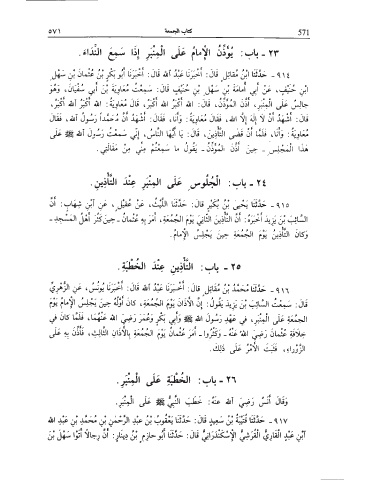 ٥٧١ كتاب الجمعة 571
٢٣ - باب: يُؤَذِّنُ الإِمامُ عَلَى الْمِنْبَرِ إِذَا سَمِعَ النِّدَاءَ.
٩١٤ - حَدَّثَنَا ابْنُ مُقَاتِلٍ قَالَ: أَخْبَرَنَا عَبْدُ اللهِ قَالَ: أَخْبَرَنَا أَبُو بَكْرِ بْنُ عُثْمَانَ بْنِ سَهْلِ
ابْنِ حُنَيْفٍ، عَنْ أَبِي أُمَامَةَ بْنِ سَهْلِ بْنِ حُنَيْفٍ قَالَ: سَمِعْتُ مُعَاوِيَةَ بْنَ أَبِي سُفْيَانَ، وَهُوَ
جالِسٌ عَلَى الْمِنْبَرِ، أَذَّنَ الْمُؤَذِّنُ، قَالَ: اللهُ أَكْبَرُ، اللهُ أَكْبَرُ، قَالَ مُعَاوِيَةُ: اللهُ أَكْبَرُ اللهُ أَكْبَرُ،
قَالَ: أَشْهَدُ أَنْ لَا إِلٰهَ إِلَّا اللهُ، فَقَالَ مُعَاوِيَةُ: وَأَنَا، فَقَالَ: أَشْهَدُ أَنَّ مُحَمَّداً رَسُولُ اللهِ، فَقَالَ
مُعَاوِيَةُ: وَأَنَا، فَلَمَّا أَنْ قَضَى التَّأْذِينَ، قَالَ: يَا أَيُّهَا النَّاسُ، إِنِّي سَمِعْتُ رَسُولَ اللهِ ﷺ عَلَى
هٰذَا الْمَجْلِسِ - حِينَ أَذَّنَ الْمُؤَذِّنُ - يَقُولُ مَا سَمِعْتُمْ مِنِّي مِنْ مَقَالَتِي.
٢٤ - باب: الْجُلُوسِ عَلَى الْمِنْبَرِ عِنْدَ التَّأْذِينِ.
٩١٥ - حَدَّثَنَا يَحْيَى بْنُ بُكَيْرٍ قَالَ: حَدَّثَنَا اللَّيْثُ، عَنْ عُقَيْلٍ، عَنِ ابْنِ شِهَابٍ: أَنَّ
السَّائِبَ بْنَ يَزِيدَ أَخْبَرَهُ: أَنَّ التَّأْذِينَ الثَّانِيَ يَوْمَ الْجُمُعَةِ، أَمَرَ بِهِ عُثْمَانُ - حِينَ كَثُرَ أَهْلُ الْمَسْجِدِ -
وَكَانَ التَّأْذِينُ يَوْمَ الْجُمُعَةِ حِينَ يَجْلِسُ الْإِمَامُ.
٢٥ - باب: التَّأْذِينِ عِنْدَ الْخُطْبَةِ.
٩١٦ - حَدَّثَنَا مُحَمَّدُ بْنُ مُقَاتِلٍ قَالَ: أَخْبَرَنَا عَبْدُ اللهِ قَالَ: أَخْبَرَنَا يُونُسُ، عَنِ الزُّهْرِيِّ
قَالَ: سَمِعْتُ السَّائِبَ بْنَ يَزِيدَ يَقُولُ: إِنَّ الأَذَانَ يَوْمَ الْجُمُعَةِ، كانَ أَوَّلُهُ حِينَ يَجْلِسُ الإِمَامُ يَوْمَ
الجمعَةِ عَلَى الْمِنْبَرِ، في عَهْدِ رَسُولِ اللهِ ﷺ وأَبِي بَكْرٍ وَعُمَرَ رَضِيَ اللهُ عَنْهُمَا، فَلَمَّا كانَ في
خِلَافَةِ عُثْمَانَ رَضِيَ اللهُ عَنْهُ - وَكَثُرُوا - أَمَرَ عُثْمَانُ يَوْمَ الْجُمُعَةِ بِالْأَذَانِ الثَّالِثِ، فَأُذِّنَ بِهِ عَلَى
الزَّوْرَاءِ، فَثَبَتَ الأَمْرُ عَلَى ذٰلِكَ.
٢٦ - باب: الْخُطْبَةِ عَلَى الْمِنْبَرِ.
وَقَالَ أَنَسٌ رَضِيَ اللهُ عَنْهُ: خَطَبَ النَّبِيُّ ﷺ عَلَى الْمِنْبَرِ.
٩١٧ - حَدَّثَنَا قُتَيْبَةُ بْنُ سَعِيدٍ قَالَ: حَدَّثَنَا يَعْقُوبُ بْنُ عَبْدِ الرَّحْمٰنِ بْنِ مُحَمَّدِ بْنِ عَبْدِ اللهِ
ابْنِ عَبْدٍ القَارِيُّ الْقُرَشِيُّ الْإِسْكَنْدَرَانِيُّ قَالَ: حَدَّثَنَا أَبُو حَازِمِ بْنُ دِينَارٍ: أَنَّ رِجَالاً أَتَوْا سَهْلَ بْنَ